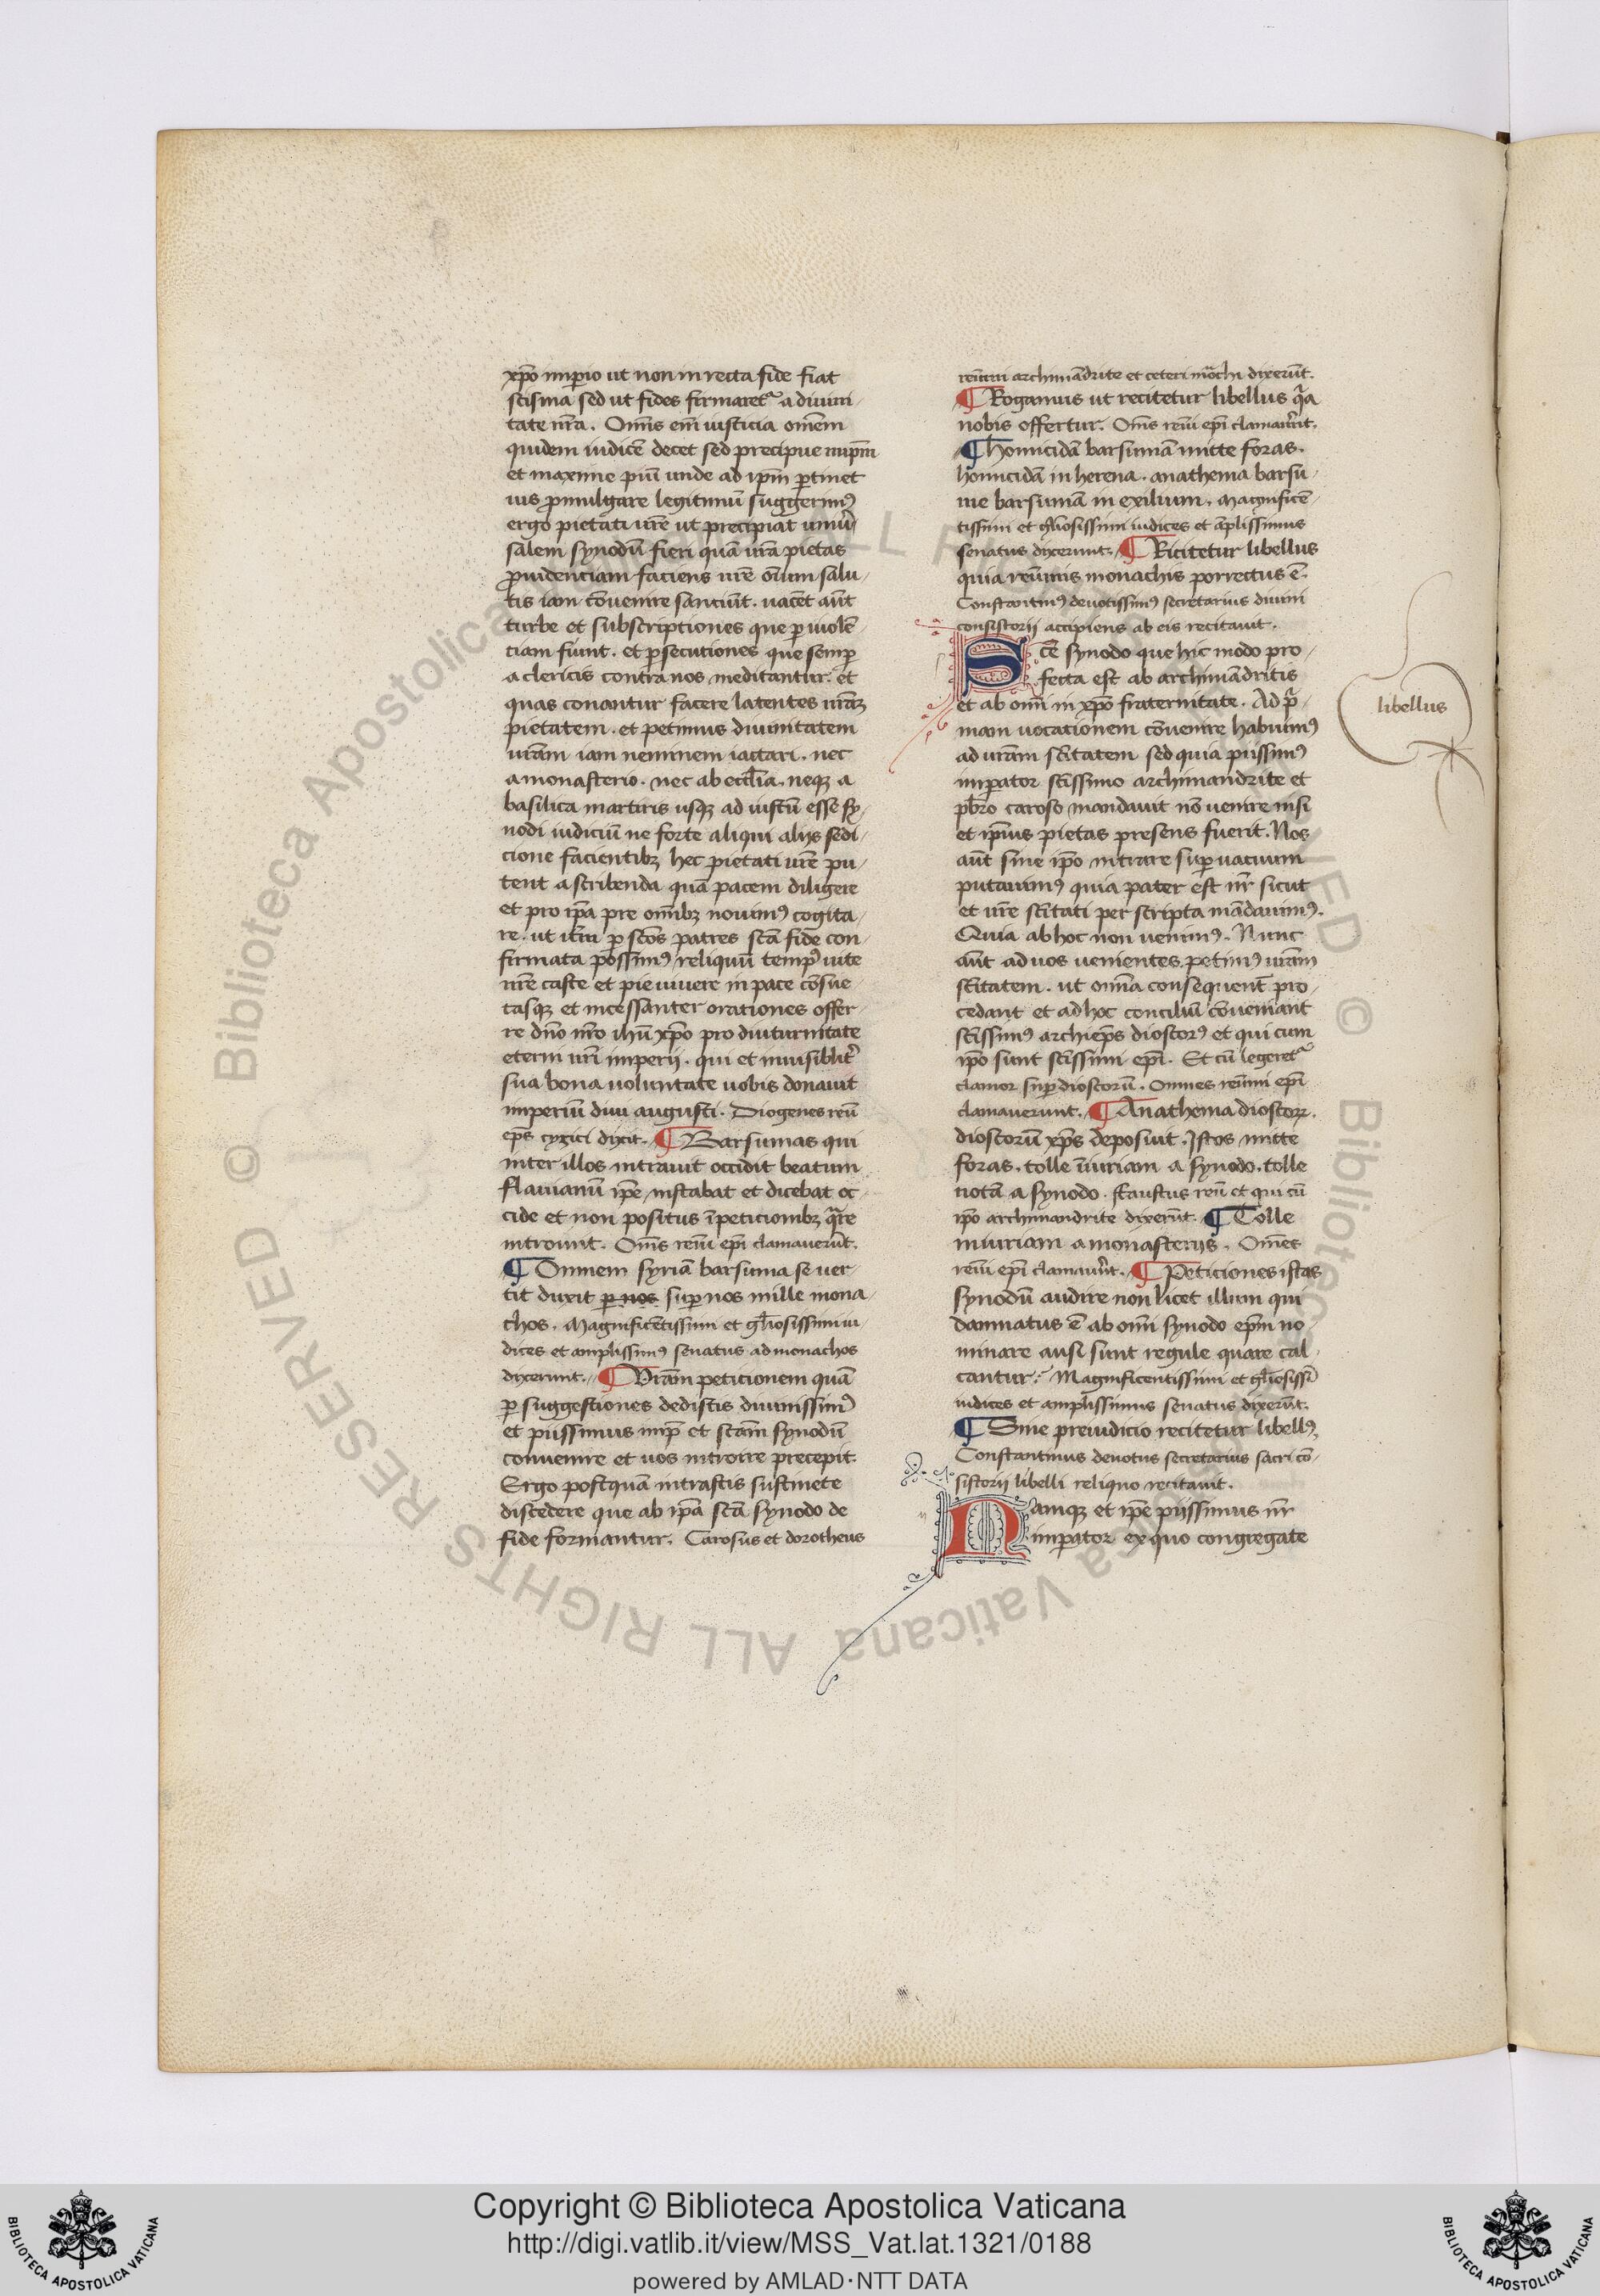 xp̄o imꝑio ut non in recta fide fiat
scisma sed ut fides firmaretᷣ a diuini
tate nr̄a. Om̄s em̄ iusticia om̄em
quidem iudicē decet sed precipue imp̄m
et maxime piū unde ad ip̄m ꝑtinet
ius ꝓmulgare legitimū suggerimꝰ
ergo pietati ur̄e ut precipiat uniu͛
salem synodū fieri quā ur̄a pietas
ꝓuidenciam faciens ur̄e om̄um salu
tis iam cōuenire sanciūt. uacēt aūt
turbe et subscriptiones que ꝑ uiolē
ciam fiunt. et ꝑsecutiones que semꝑ
a clericis contra nos meditantur. et
quas conantur facere latentes ur̄aꝫ
pietatem. et petimus diuinitatem
ur̄am iam neminem iactari. nec
a monasterio. nec ab eccl̄ia. neqꝫ a
basilica martiris usqꝫ ad iustū esse sy
nodi iudiciū ne forte aliqui alijs sedi
cione facientibꝫ hec pietati ur̄e pu
tent ascribenda quā pacem diligere
et pro ip̄a pre om̄ibꝫ nouimꝰ cogita
re. ut it̄m ꝑ sc̄os patres sc̄a fide con
firmata possimꝰ reliquū tempꝰ uite
nr̄e caste et pie uiuere in pace cōsue
tasqꝫ et incessanter orationes offer
re dn̄o nr̄o ihū xp̄o pro diuturnitate
eterni ur̄i imperij. qui et inuisiblit͛
sua bona uoluntate uobis donauit
imperiū diui augusti. Diogenes reū
ep̄s cyzici dixit. ¶ Barsumas qui
inter illos intrauit occidit beatum
flauianū ip̄e instabat et dicebat oc
cide et non positus ī peticionibꝫ qͣre
introiuit. Om̄s reūi ep̄i clamauerūt.
¶ Omnem syriā barsuma se uer
tit duxit ꝑ nos suꝑ nos mille mona
chos. Magnificētissimi et gl̄iosissimi iu
dices et amplissimꝰ senatus ad monachos
dixerunt. ¶ Ur̄am peticionem quā
ꝑ suggestiones dedistis diuinissimꝰ
et piissimus imp̄ et sc̄am synodū
conuenire et uos introire precepit.
Ergo postquā intrastis sustinete
discedere que ab ip̄a sc̄a synodo de
fide formantur. Carosus et dorotheus
reūmi archimādrite et ceteri mōchi dixerūt.
¶ Rogamus ut recitetur libellus qͣa
nobis offertur. Om̄s reūi ep̄i clamau͛ut.
¶ homicidā barsumā mitte foras.
homicidā in herena. anathema barsu
me barsumā in exilium. Magnificē
tissimi et gl̄iosissimi iudices et āplissimus
senatus dixerunt. ¶ Ricitetur libellus
quia reūmis monachis porrectus ē.
Constantinꝰ deuotissimꝰ secretarius diuini
consistorij accipiens ab eis recitauit.
Sc̄e synodo que hic modo pro
fecta est ab archimādritis
et ab om̄i in xp̄o fraternitate. Ad pͥ
mam uocationem cōuenire habuimꝰ
ad ur̄am sc̄itatem sed quia piissimꝰ
imꝑator sc̄issimo archimandrite et
pb̄ro caroso mandauit nō uenire nisi
et ip̄ius pietas presens fuerit. Nos
aūt sine ip̄o intrare suꝑuacuum
putauimꝰ quia pater est nr̄ sicut
et ur̄e sc̄itati per scripta mādauimꝰ.
Quia ab hoc non uenimꝰ. Nunc
aūt ad uos uenientes petimꝰ ur̄am
sc̄itatem. ut om̄ia consequent̄ pro
cedant et ad hoc conciliū cōueniant
sc̄issimꝰ archiep̄s dioscorꝰ et qui cum
ip̄o sunt sc̄issimi ep̄i. Et cū legeretᷣ
clamor suꝑ dioscorū. Omnes reūmi ep̄i
clamauerunt. ¶ Anathema dioscoꝝ.
dioscorū xp̄s deposuit. Istos mitte
foras. tolle īiuriam a synodo. tolle
notā a synodo. ffaustus reū et qui cū
ip̄o archimandrite dixerūt. ¶ Tolle
iniuriam a monasterijs. Om̄es
reūi ep̄i clamau͛ut. ¶ Peticiones istas
synodū audire non licet illum qui
damnatus ē ab om̄i synodo ep̄m no
minare ausi sunt regule quare cal
cantur? Magnificentissimi et gl̄iosissī
iudices et amplissimus senatus dixerūt.
¶ Sine preiudicio recitetur libellꝰ,
Constantinus deuotus secretarius sacri cō
sistorij libelli reliquo recitauit.
Namqꝫ et ip̄e piissimus nr̄
imꝑator ex quo congregate
libellus
Copyright © Biblioteca Apostolica Vaticana
http://digi.vatlib.it/view/MSS_Vat.lat.1321/0188
powered by AMLAD·NTT DATA
BIBLIOTECA APOSTOLICA VATICANA
BIBLIOTECA APOSTOLICA VATICANA
© Biblioteca Apostolica Vaticana ALL RIGHTS RESERVED © Biblioteca Apostolica Vaticana ALL RIGHTS RESERVED